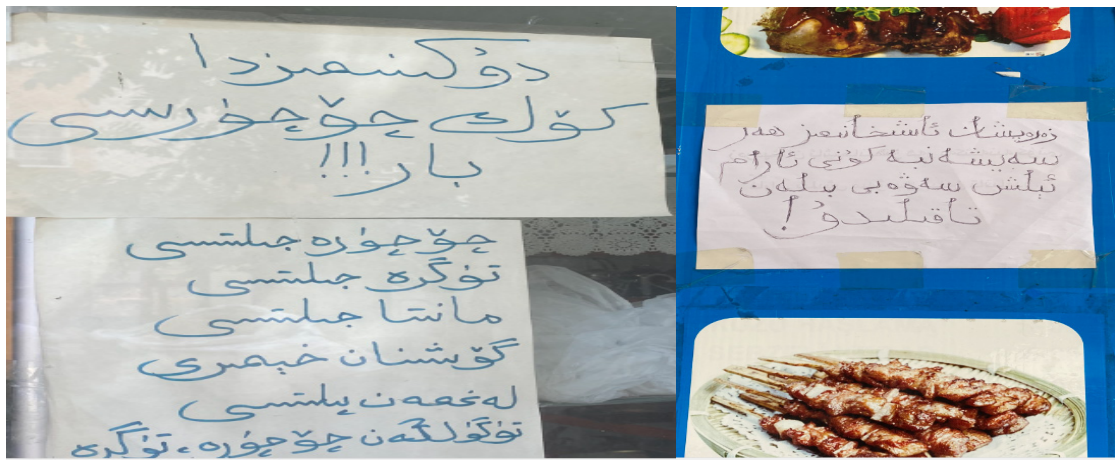 دۇكىنىمىزدا
كۆك چۆچۈرىسى
بار!!!
چۆچۈرە جىلىتىسى
تۈگرە جىلىتىسى
مانتا جىلىتىسى
گۆشنان خېمىرى
لەغمەن پىلتىسى
تۈگۈلگەن چۆچۈرە، تۈگرە
ئاشخانىمىز ھەر
سەيشەنبە كۈنى ئارام
ئېلىش سەۋەبى بىلەن
تاقىلىدۇ!